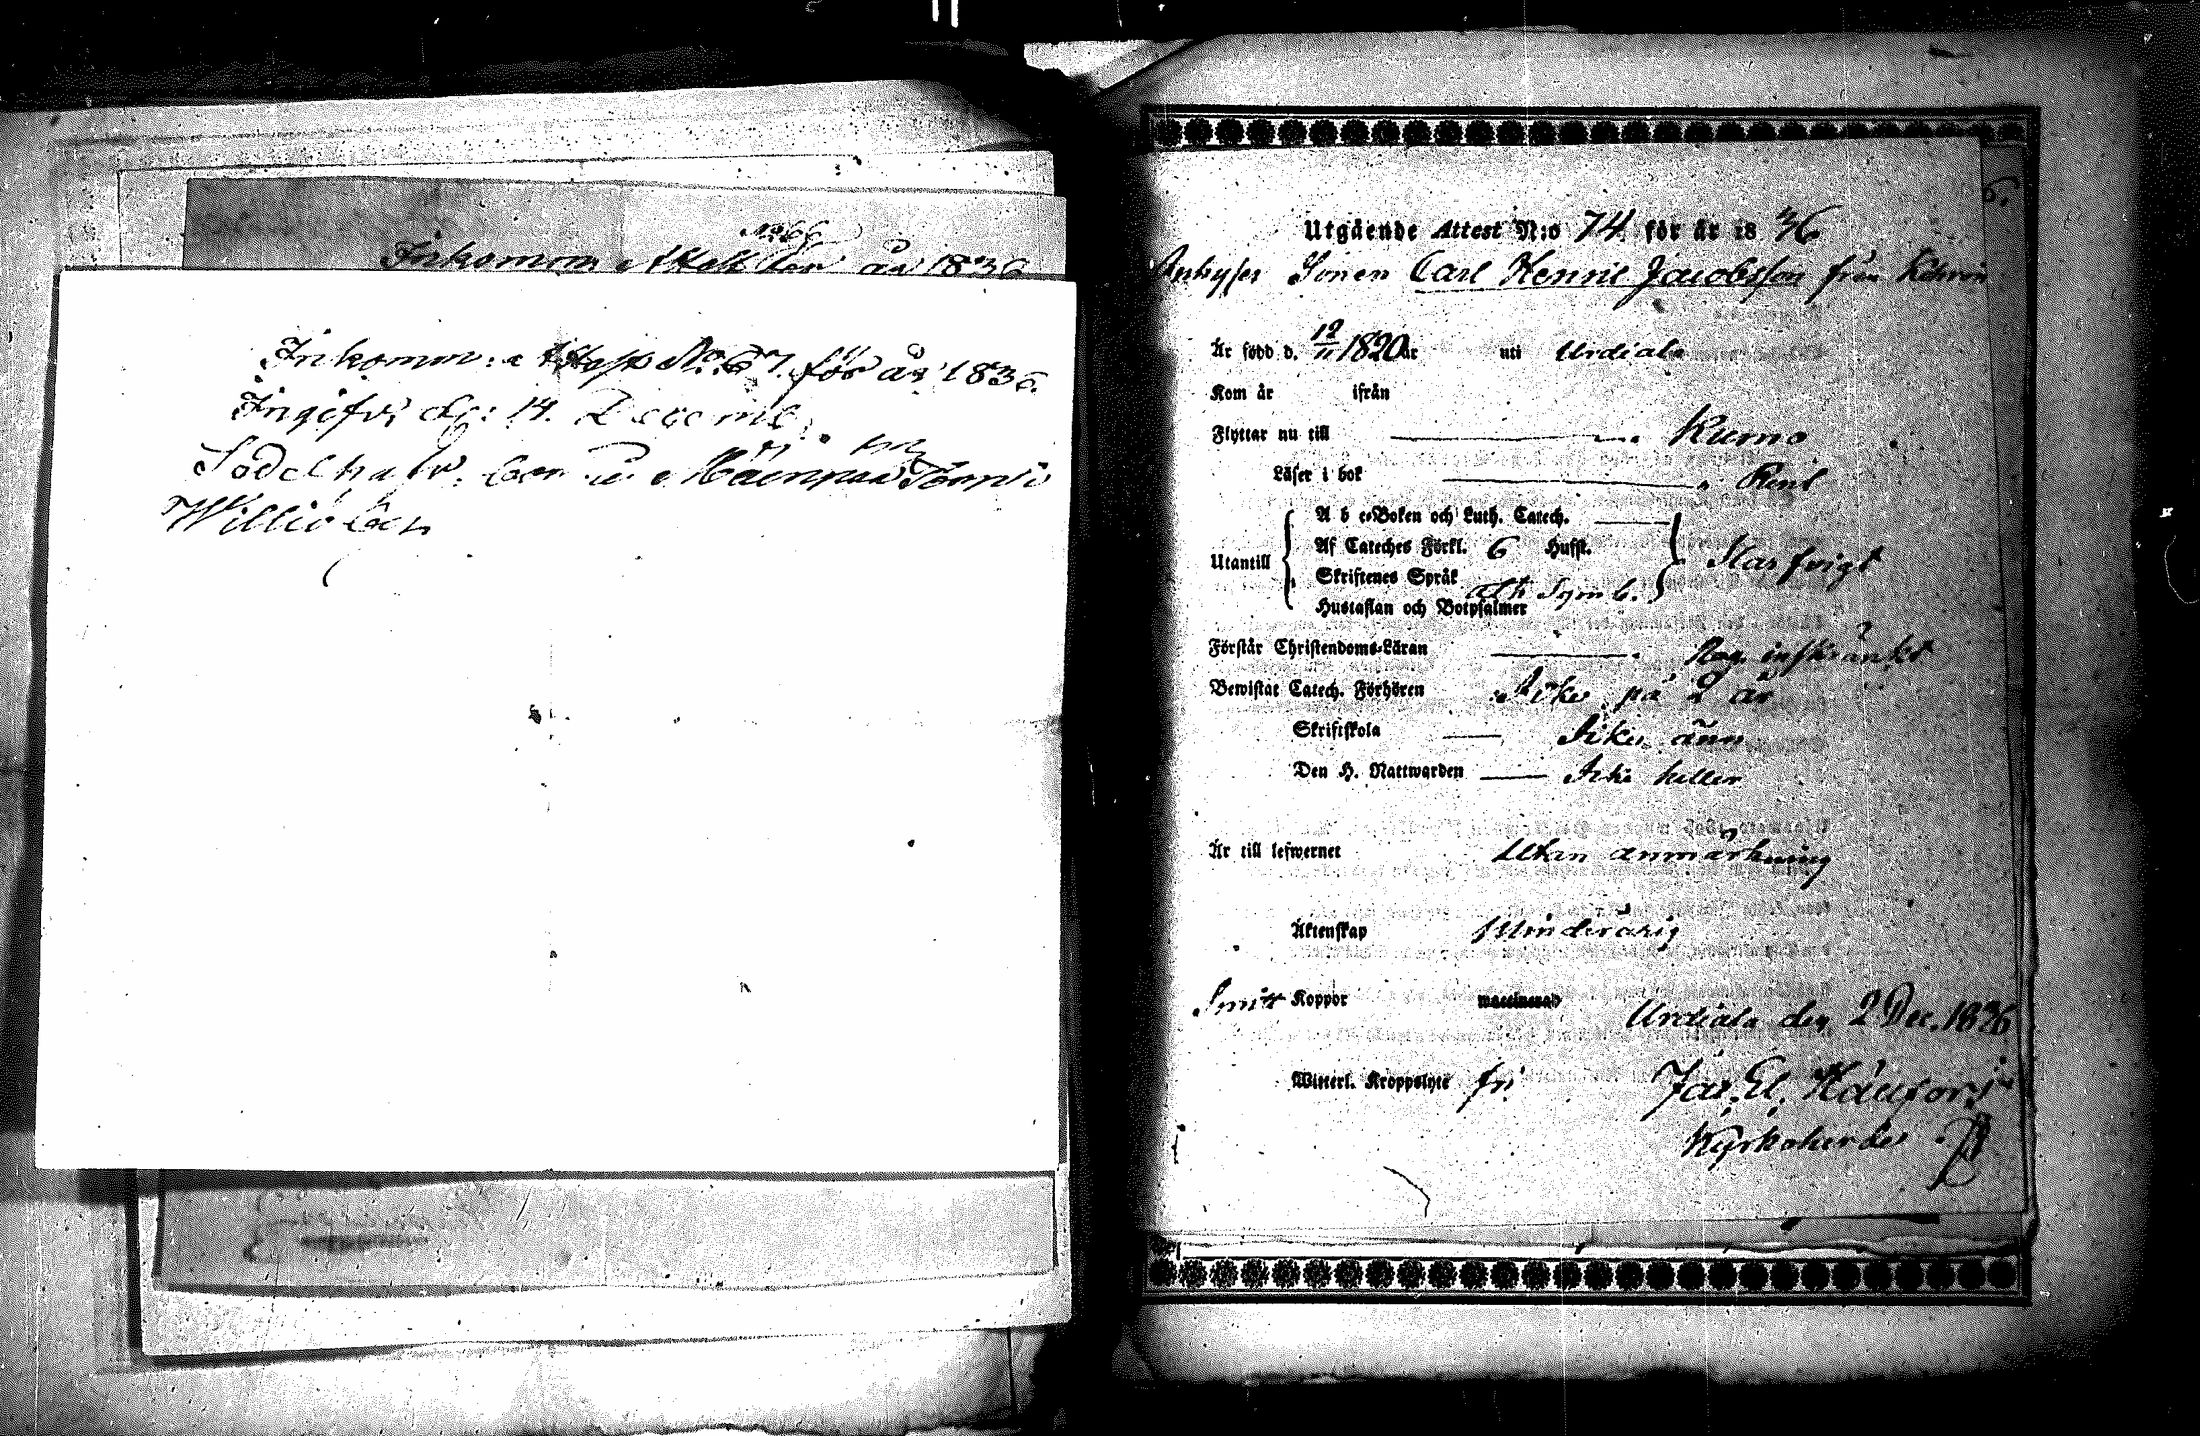 No 66
Inkommen Attest för år 1836
Inkomm: Attest No. 67. för år 1836.
Ingifv: d: 14. Decemb.
Willio
6.
Utgående Attest N:o 74 för år 18 36
Inhyses Sonen Carl Henric Jacobsson från
Är född d. 12/11 1820 år uti Urdiala
Kom år ifrån
Flyttar nu till Kumo
Läser i bok Rent
A b c-Boken och Luth. Catech.
Af Cateches Förkl. 6 Hufst.
Utantill Skarfvigt
Skriftenes Språk
Ath Symb.
Hustaflan och Botpsalmer
Förstår Christendoms-Läran Nog inskränkt
Bewistat Catech. Förhören Icke på 2 år
Skriftskola Icke ännu
Den H. Nattwarden Icke heller
Är till lefwernet Utan anmärkning
Äktenskap Minderårig
Koppor waccinerad
Urdiala den 2 Dec. 1836
Witterl. Kroppslyte fri
Jac. El.
Kyrkoherde